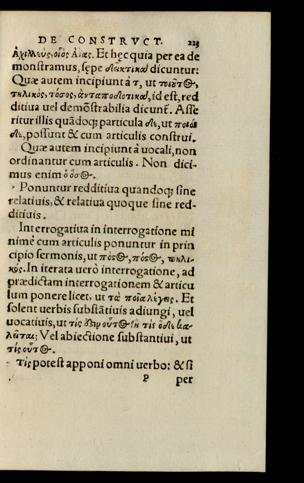 DE CONSTRVCT. 225
Ἀχιλλεὺς, οἷος Αἴας. Et hęc quia per ea de
monstramus, sępe δεικτικὰ dicuntur:
Quæ autem incipiunt à τ, ut τοιοῦτος,
τηλικὸς, τόσος, ἀνταποδοτικὰ, id est, red
ditiua uel demõstrabilia dicunt. Asse
ritur illis quãdoq; particula δὲ, ut
δὲ, possunt & cum articulis construi.
Quæ autem incipiunt à uocali, non
ordinantur cum articulis. Non dici-
mus enim ὁ ὅσος.
Ponuntur redditiua quandoq; sine
relatiuis, & relatiua quoque sine red-
ditiuis.
Interrogatiua in interrogatione mi
nimẽ cum articulis ponuntur in prin
cipio sermonis, ut ποῖος, πόσος, πηλί-
κος. In iterata uerò interrogatione, ad
prædictam interrogationem & articu
lum ponere licet. ut τὰ ποῖα λέγεις. Et
solent uerbis substãtiuis adiungi, uel
uocatiuis, ut τίς
Vel abiectione substantiui, ut
τίς οὗτος.
Τίς potest apponi omni uerbo: & si
P per